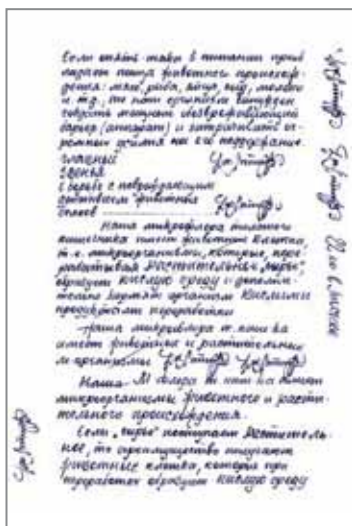 Если опять-таки в питании преоб
ладает пища животного происхож-
дения: мясо, рыба, яйца, сыр, молоко
и т.д., то наш организм вынужден
создать мощный обезвреживающий
барьер (аппарат) и затрачивать ог-
ромные усилия на его поддержание.
главный
звенья
с борьбе с повреждающим
действием животных
белков
Наша микрофлора толстого
кишечника имеет животные клетки,
т.е. микроорганизмы, которые, пере
рабатывая растительное "сырье",
образуют кислую среду и дополни-
тельно кормят организм кислыми
продуктами переработки
Наша микрофлора т. киш ка
имеет животные и растительные
м-организмы
Наша М флора т. киш ка имеет
микроорганизмы животного и расти-
тельного происхождения.
Если "сырье" поступает раститель-
ное, то преимущество получают
животные клетки, которые при
переработке образуют кислую среду